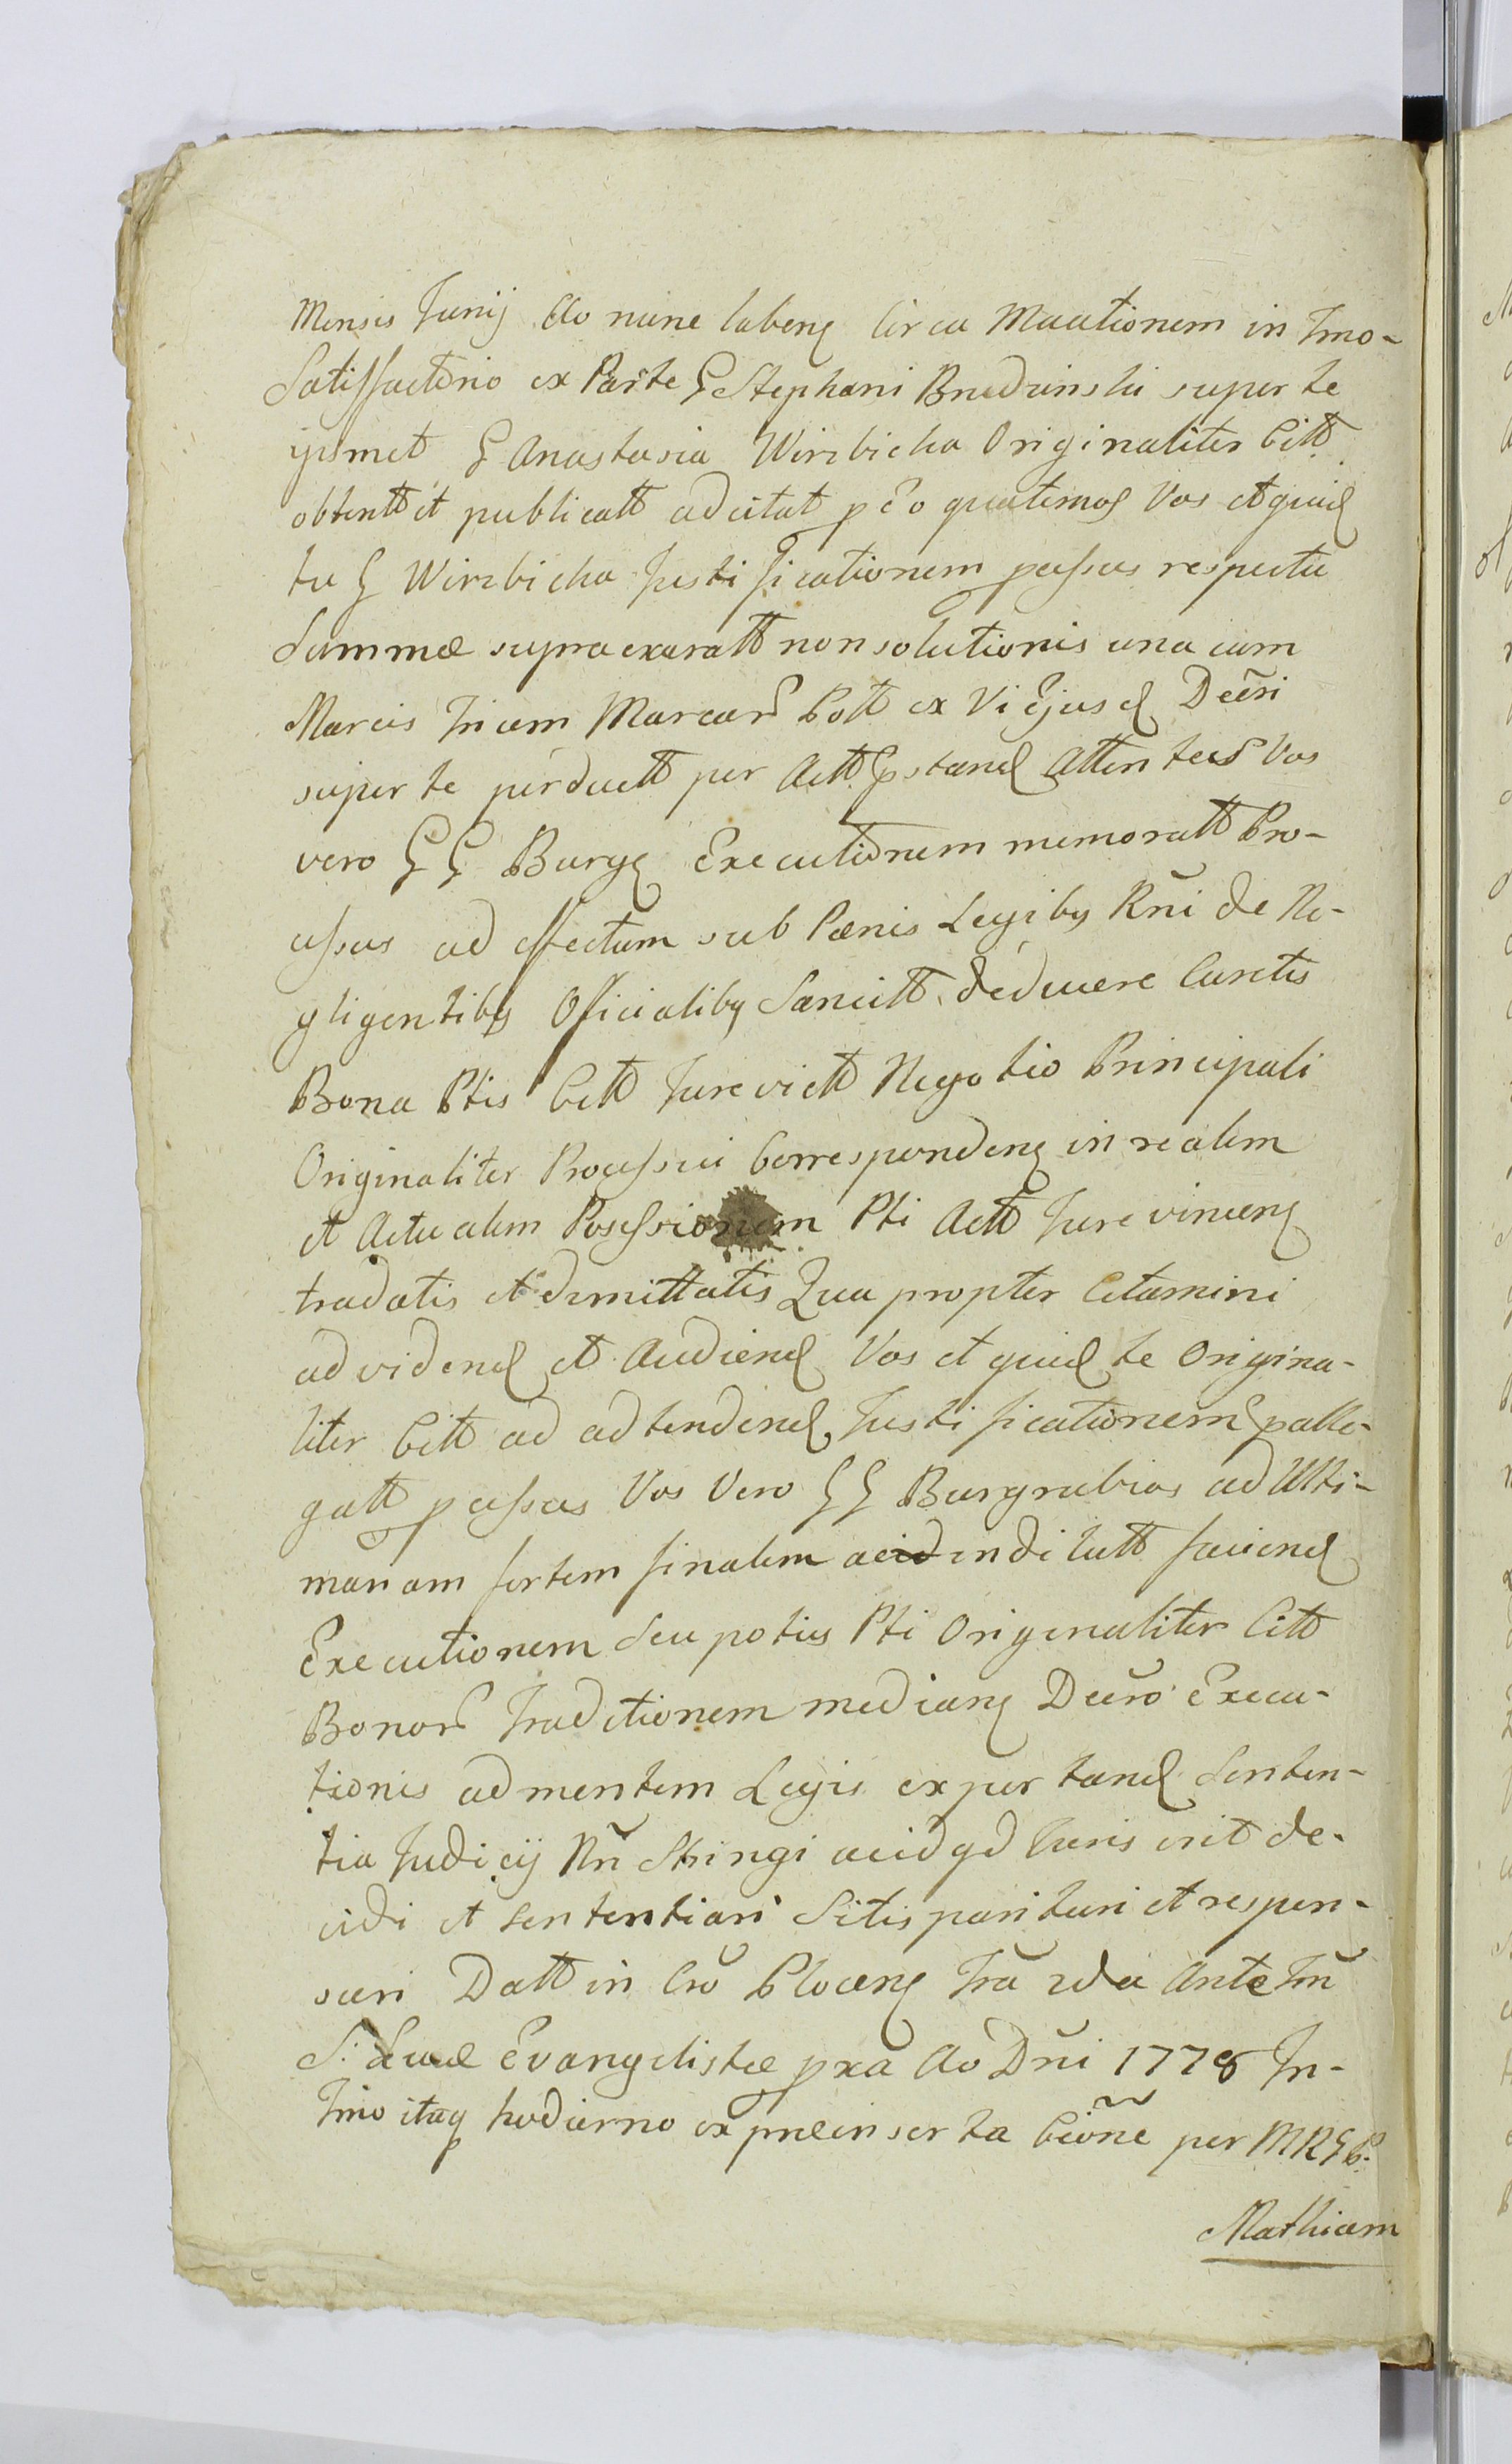 Mensis Junij Ao nunc labenꝭ Circa Mactionem in Tmo-
Satisfactorio ex Parte G Stephani Brudzinski super te
ipsmet G Anastasia Wirzbicka Originaliter Citt
obtentt et publicatt adcitat p co quatemoꝭ Vos et quid
tu G Wirzbicka Justificationem passus respectu
Summæ supra exaratt non solutionis una cum
Marcis Trium Marcarꝝ Pott ex Vi Ejusd Decri
super te perductt per Actt pstand Attentes Vos
vero GG Burgꝭ Executionem memoratt Pro-
cessus ad effectum sub Pœnis Legibꝰ Rni de Ne-
gligentibꝰ Officialibꝰ Sancitt deducere Curetis
Bona Ptis Citt Jurevictt Negotio Principali
Originaliter Processui Correspondenꝭ in realem
et Actualem Possessionem Pti Actt Jure vincenꝭ
tradatis et dimittatis Qua propter Citamini
ad videnđ et Audienđ Vos et quid te Origina-
liter Citt ad adtendenđ Justificationem palle-
gatt passus Vos Vero GG Burgrabios ad Ulti-
mariam fortem finalem acid indilatt faciend
Executionem Seu potius Pti Originaliter Citt
Bonorꝝ Traditionem medianꝭ Decro Execu-
tionis ad mentem Legis expertand Senten-
tia Judicij Rñ Stringi acid qd Juris erit de-
cidi et sententiari Sitis parituri et respon-
suri Datt in Cro Plocenꝭ Fra 2da Ante Fm
S. Lucæ Evangelistæ pxa Ao Dñi 1778 In-
Tmo itaꝗ hodierno ex præinserta Cione per MRGP.
Mathiam